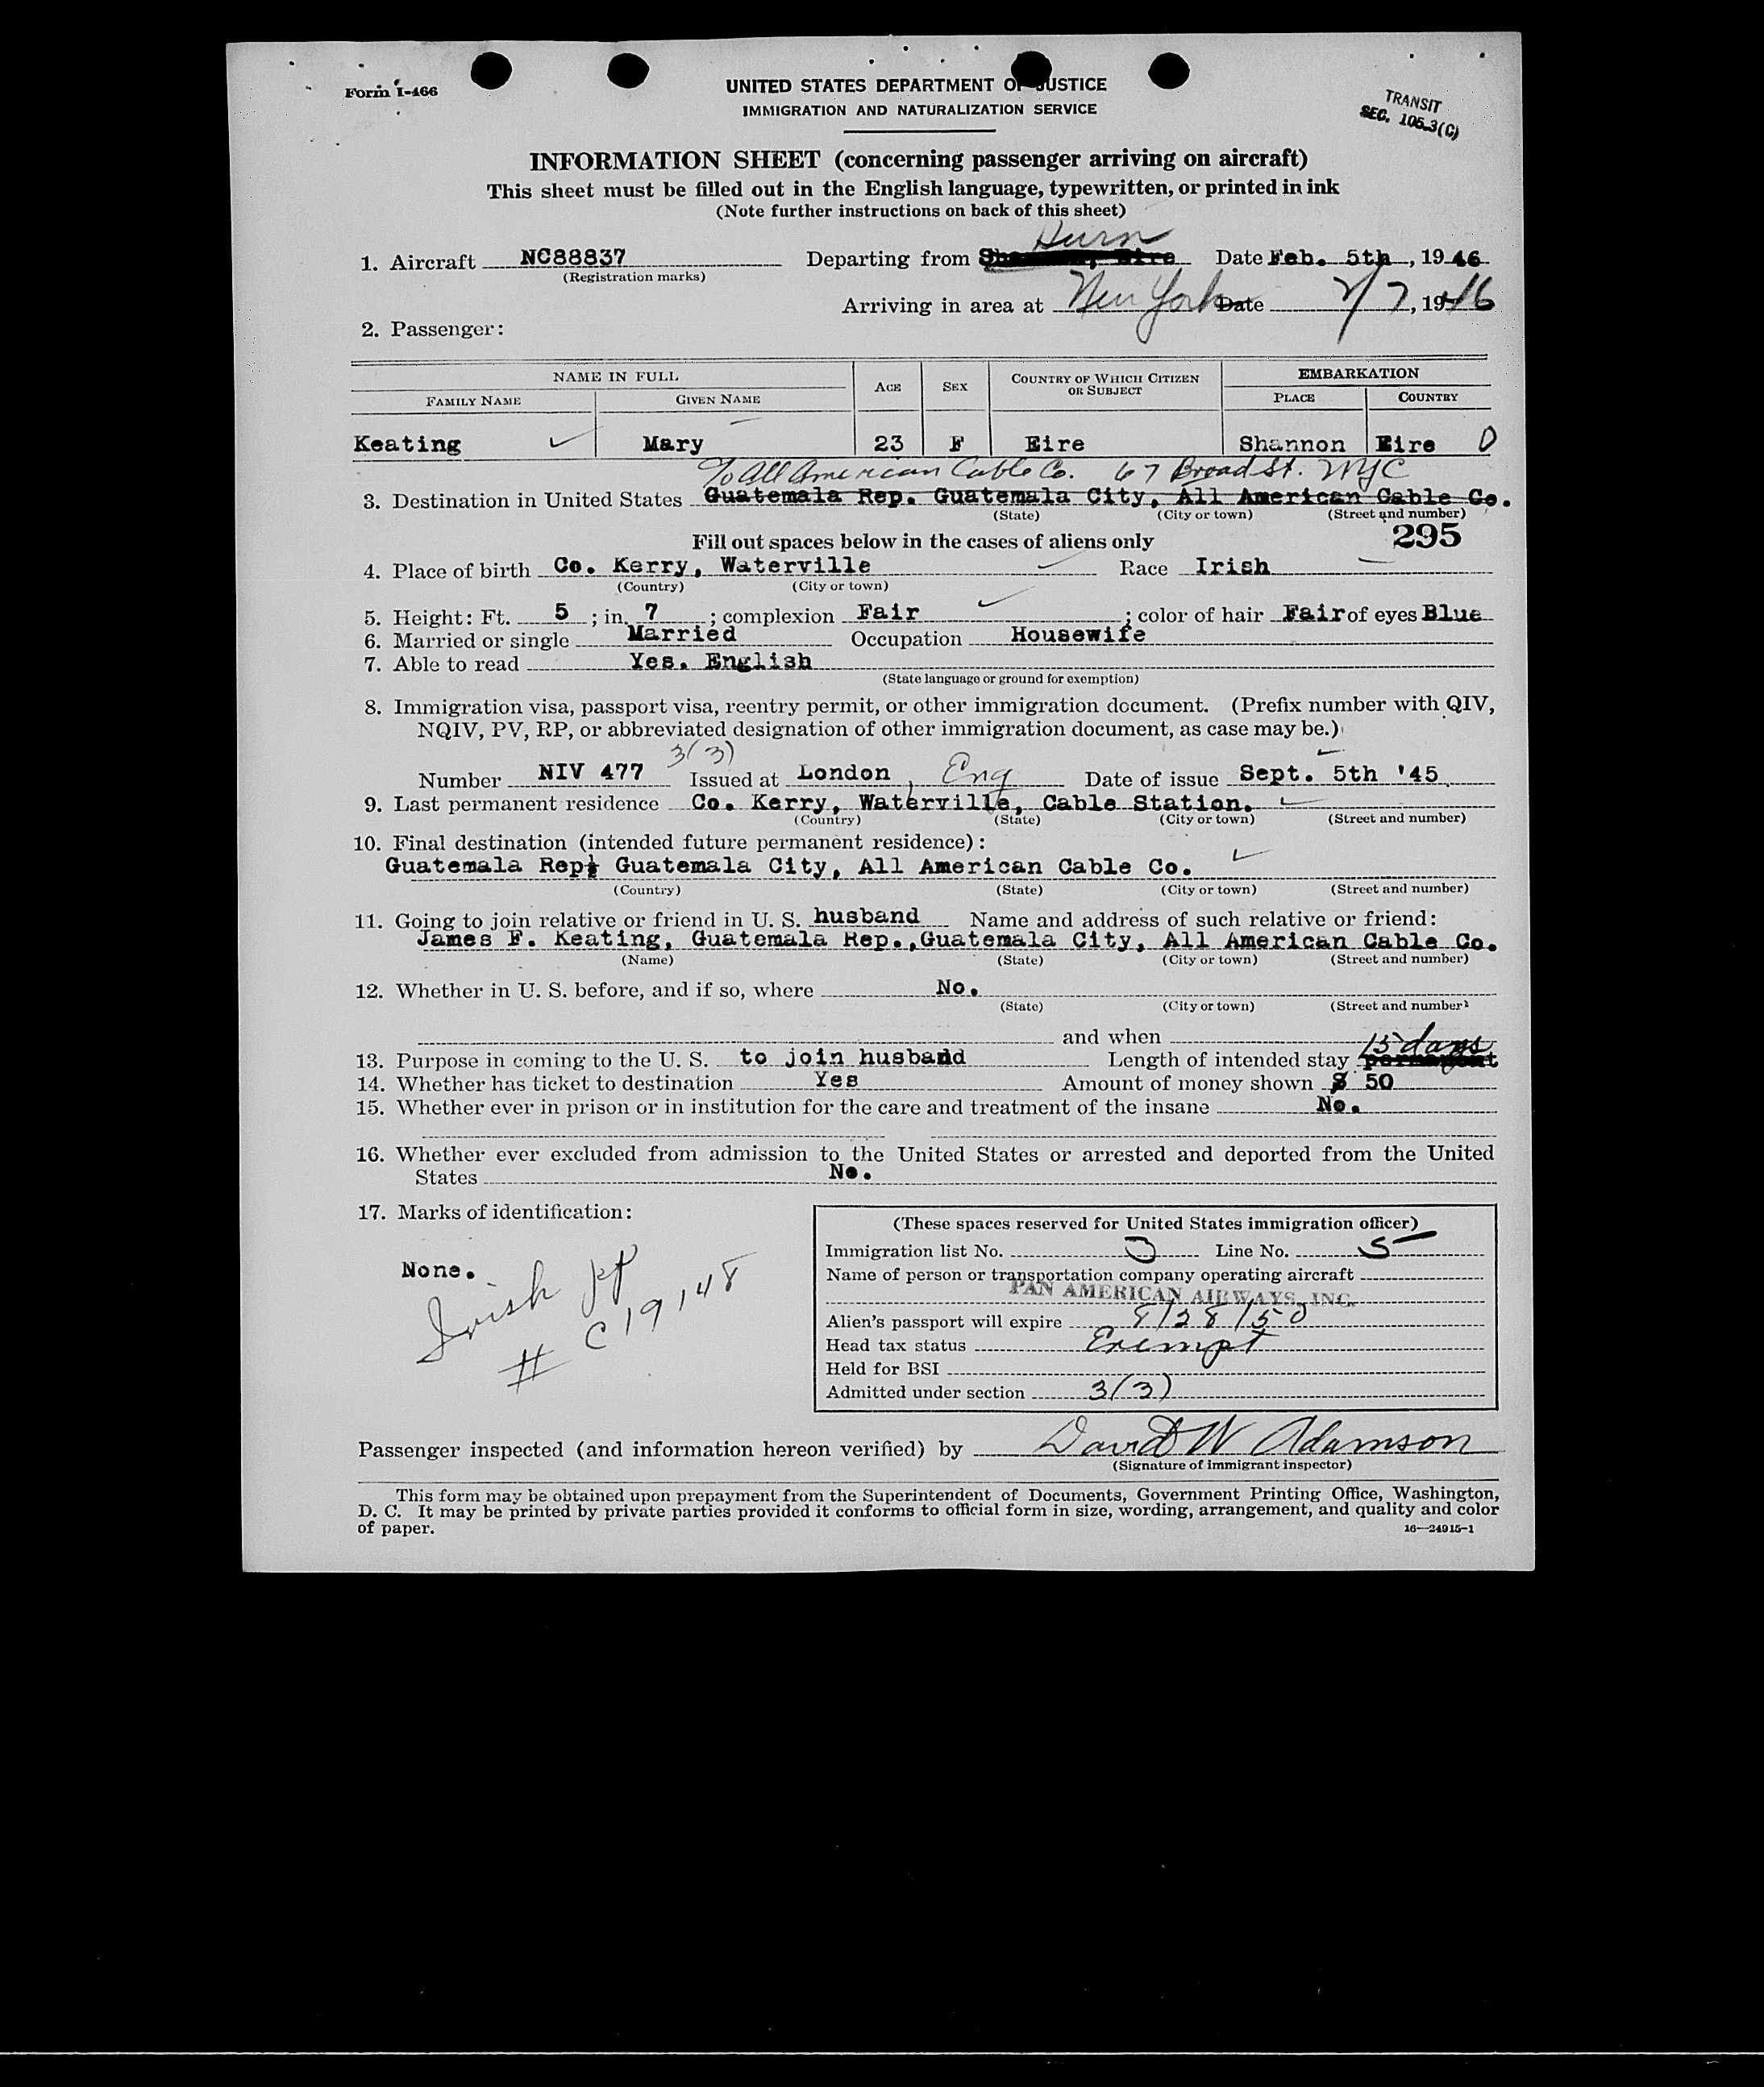 Form I-466
UNITED STATES DEPARTMENT OF JUSTICE
IMMIGRATION AND NATURALIZATION SERVICE
TRANSIT
SEC. 105.3(C)
INFORMATION SHEET (concerning passenger arriving on aircraft)
This sheet must be filled out in the English language, typewritten, or printed in ink
(Note further instructions on back of this sheet)
Hurn
1. Aircraft NC88837 Departing from Eire Date Feb. 5th, 1946
(Registration marks)
Arriving in area at New York Date 2/7, 1946
2. Passenger:
NAME IN FULL AGE SEX COUNTRY OF WHICH CITIZEN OR SUBJECT EMBARKATION
FAMILY NAME GIVEN NAME PLACE COUNTRY
Keating Mary 23 F Eire Shannon Eire D
c/o All American Cable Co. 67 Broad St. NYC
3. Destination in United States Guatemala Rep. Guatemala City, All American Cable Co.
(State) (City or town) (Street and number)
Fill out spaces below in the cases of aliens only 295
4. Place of birth Co. Kerry, Waterville Race Irish
(Country) (City or town)
5. Height: Ft. 5 ; in. 7 ; complexion Fair ; color of hair Fair of eyes Blue
6. Married or single Married Occupation Housewife
7. Able to read Yes. English
(State language or ground for exemption)
8. Immigration visa, passport visa, reentry permit, or other immigration document. (Prefix number with QIV,
NQIV, PV, RP, or abbreviated designation of other immigration document, as case may be.)
3(3)
Number NIV 477 Issued at London, Eng Date of issue Sept. 5th '45
9. Last permanent residence Co. Kerry, Waterville, Cable Station.
(Country) (State) (City or town) (Street and number)
10. Final destination (intended future permanent residence):
Guatemala Rep. Guatemala City, All American Cable Co.
(Country) (State) (City or town) (Street and number)
11. Going to join relative or friend in U. S. husband Name and address of such relative or friend:
James F. Keating, Guatemala Rep., Guatemala City, All American Cable Co.
(Name) (State) (City or town) (Street and number)
12. Whether in U. S. before, and if so, where No.
(State) (City or town) (Street and number)
and when
15 days
13. Purpose in coming to the U. S. to join husband Length of intended stay permanent
14. Whether has ticket to destination Yes Amount of money shown $ 50
15. Whether ever in prison or in institution for the care and treatment of the insane No.
16. Whether ever excluded from admission to the United States or arrested and deported from the United
States No.
17. Marks of identification:
None.
Irish pp
# C19148
(These spaces reserved for United States immigration officer)
Immigration list No. 3 Line No. 5
Name of person or transportation company operating aircraft
PAN AMERICAN AIRWAYS, INC.
Alien's passport will expire 8/28/50
Head tax status Exempt
Held for BSI
Admitted under section 3(3)
Passenger inspected (and information hereon verified) by David W Adamson
(Signature of immigrant inspector)
This form may be obtained upon prepayment from the Superintendent of Documents, Government Printing Office, Washington,
D. C. It may be printed by private parties provided it conforms to official form in size, wording, arrangement, and quality and color
of paper.
16—24915-1